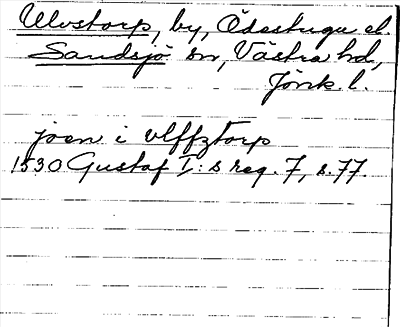 Ulvstorp, by, Ödestugu el.
Sandsjö sn, Västra hd,
Jönk. l.
joen i vlffztorp
1530 Gustaf I:s reg. 7, s. 77.